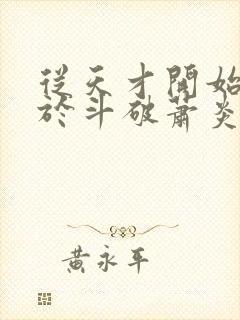 從天才開始
於斗破蕭炎
黃永平